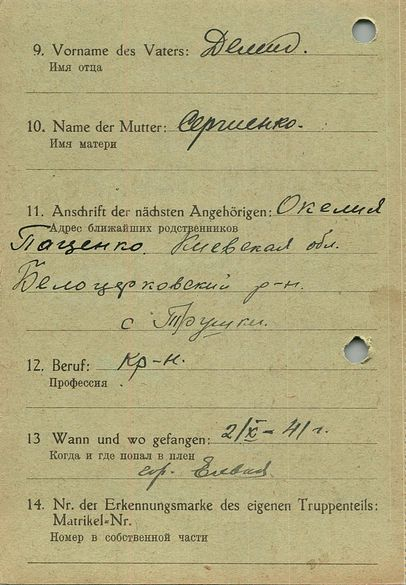 9. Vorname des Vaters: Демид.
Имя отца
10. Name der Mutter: Сергиенко.
Имя матери
11. Anschrift der nächsten Angehörigen: Окелия
Адрес ближайших родственников
Пащенко. Киевская обл.
Белоцерковский р-н.
с Трушки.
12. Beruf: кр-н.
Профессия
13 Wann und wo gefangen: 2/X-41 г.
Когда и где попал в плен
гор.
14. Nr. der Erkennungsmarke des eigenen Truppenteils:
Matrikel-Nr.
Номер в собственной части